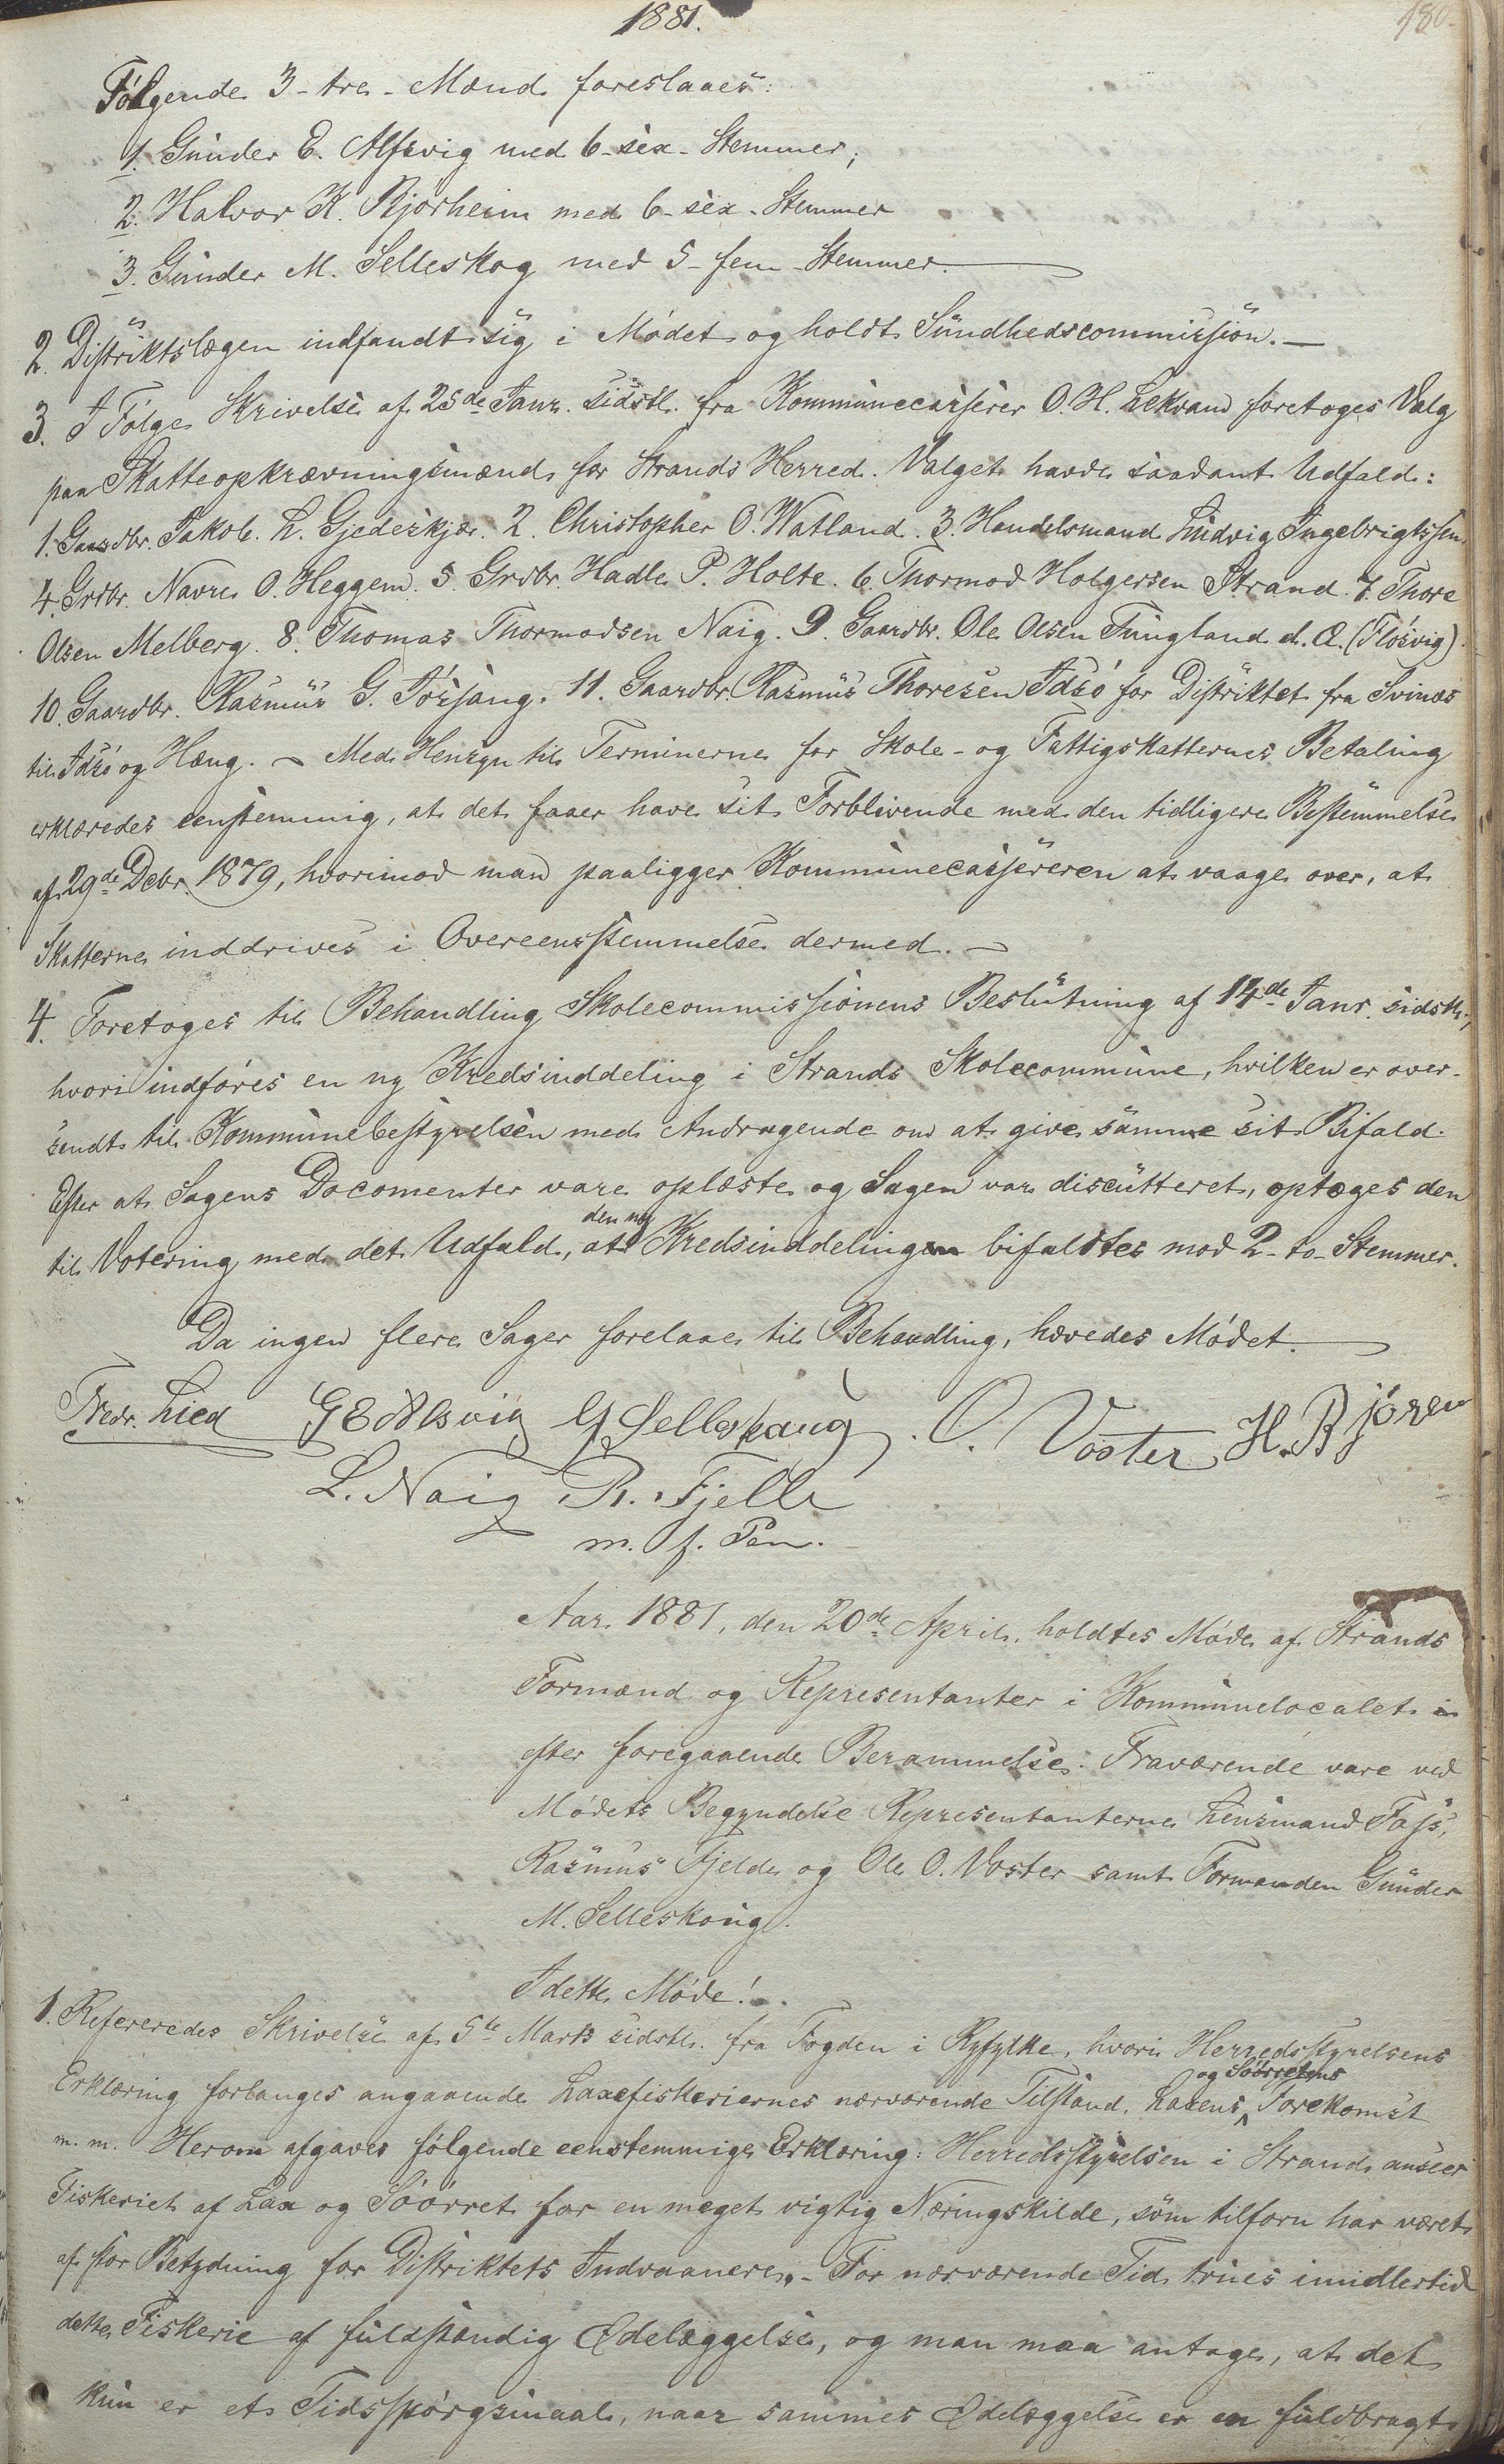 1881.
180.
Følgende 3 - tre - Mænd foreslaaes:
1. Gunder E. Alfsvig med 6 - sex - Stemmer;
2. Halvor K. Bjørheim med 6 - sex - Stemmer
3. Gunder M. Selleskog med 5 - fem - Stemmer.
2. Distriktslægen indfandt sig i Mødet og holdt Sundhedscommission. —
3. I Følge Skrivelse af 25de Janr. sidstl. fra Kommunecasserer O. H. Lekvam foretoges Valg
paa Skatteopkrævningsmænd for Strands Herred. Valget havde saadant Udfald:
1. Gaardbr. Jakob L. Gjedeskjær. 2. Christopher O. Watland. 3. Handelsmand Ludvig Ingebrigtssen.
4. Grdbr. Navre O. Heggem. 5. Grdbr. Hadle P. Holte. 6. Thormod Holgersen Strand. 7. Thore
Olsen Melberg. 8. Thomas Thormodsen Naig. 9. Gaardbr. Ole Olsen Tungland d. Æ. (Fløsvig).
10. Gaardbr. Rasmus G. Jøssang. 11. Gaardbr. Rasmus Thoresen Idsø for Distriktet fra Svinæs
til Idsø og Hæng. — Med Hensyn til Terminerne for Skole- og Fattigskatternes Betaling
erklæredes eenstemmig, at det faaer have sit Forblivende med den tidligere Bestemmelse
af 29de Decbr. 1879, hvorimod man paaligger Kommunecassereren at vaage over, at
Skatterne inddrives i Overeensstemmelse dermed. —
4. Foretoges til Behandling Skolecommissionens Beslutning af 14de Janr. sidstl.,
hvori indføres en ny Kredsinddeling i Strands Skolecommune, hvilken er over-
sendt til Kommunebestyrelsen med Andragende om at give samme sit Bifald.
Efter at Sagens Documenter vare oplæste og Sagen var discutteret, optoges den
til Votering med det Udfald, at den ny Kredsinddeling bifaldtes mod 2 - to - Stemmer.
Da ingen flere Sager forelaae til Behandling, hævedes Mødet.
Fredr. Lied G E Alsvig G Selleskaug. O. Voster H. Bjøren
L. Naig R. Fjelle
m. f. Pen.
Aar 1881, den 20de April, holdtes Møde af Strands
Formænd og Repræsentanter i Kommunelocalet
efter foregaaende Berammelse. Fraværende vare ved
Mødets Begyndelse Repræsentanterne Lensmand Fass,
Rasmus Fjelde og Ole O. Voster samt Formanden Gunder
M. Selleskoug.
I dette Møde!
1. Refereredes Skrivelse af 5te Marts sidstl. fra Fogden i Ryfylke, hvori Herredsstyrelsens
Erklæring forlanges angaaende Laxefiskeriernes nærværende Tilstand, Laxens og Søørretens Forekomst
m. m. Herom afgaves følgende eenstemmige Erklæring: Herredsstyrelsen i Strand anseer
Fiskeriet af Lax og Søørret for en meget vigtig Næringskilde, som tilforn har været
af stor Betydning for Distriktets Indvaanere. - For nærværende Tid trues imidlertid
dette Fiskerie af fuldstændig Ødelæggelse, og man maa antage, at det
kun er et Tidsspørgsmaal, naar sammes Ødelæggelse er fuldbragt